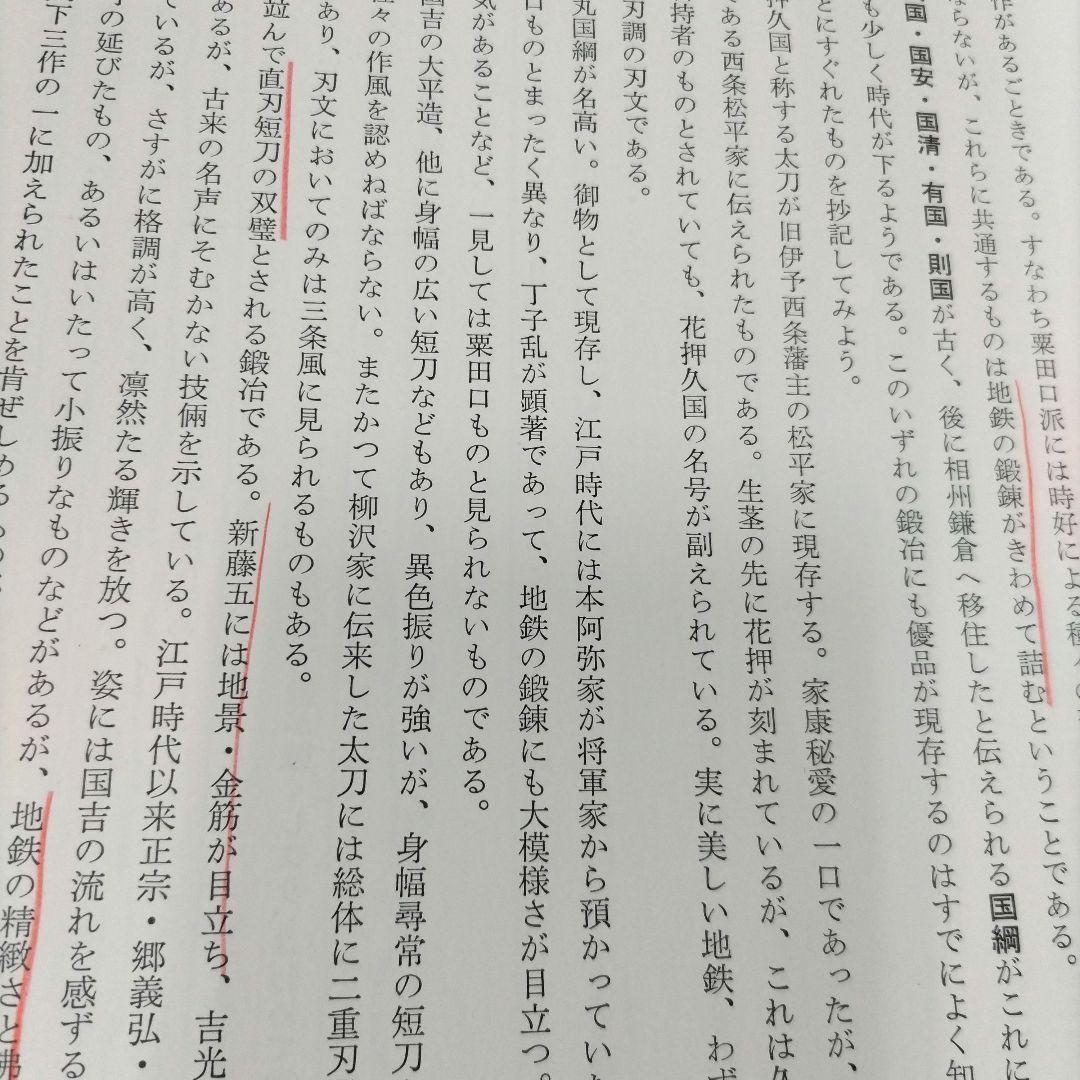 作があるごときである。すなわち粟田口派には時好による種々の
ならないが、これらに共通するものは地鉄の鍛錬がきわめて詰むということである。
国・国安・国清・有国・則国が古く、後に相州鎌倉へ移住したと伝えられる国綱がこれに
も少しく時代が下るようである。このいずれの鍛冶にも優品が現存するのはすでによく知
とにすぐれたものを抄記してみよう。
押久国と称する太刀が旧伊予西条藩主の松平家に現存する。家康秘愛の一口であったが、
である西条松平家に伝えられたものである。生茎の先に花押が刻まれているが、これは久
持者のものとされていても、花押久国の名号が副えられている。実に美しい地鉄、わず
刃調の刃文である。
丸国綱が名高い。御物として現存し、江戸時代には本阿弥家が将軍家から預かっていた
口ものとまったく異なり、丁子乱が顕著であって、地鉄の鍛錬にも大模様さが目立つ。
気があることなど、一見しては粟田口ものと見られないものである。
国吉の大平造、他に身幅の広い短刀などもあり、異色振りが強いが、身幅尋常の短刀
々の作風を認めねばならない。またかつて柳沢家に伝来した太刀には総体に二重刃
あり、刃文においてのみは三条風に見られるものもある。
並んで直刃短刀の双璧とされる鍛冶である。新藤五には地景・金筋が目立ち、吉光
あるが、古来の名声にそむかない技倆を示している。江戸時代以来正宗・郷義弘・
ているが、さすがに格調が高く、凛然たる輝きを放つ。姿には国吉の流れを感ずる
の延びたもの、あるいはいたって小振りなものなどがあるが、地鉄の精緻さと沸
下三作の一に加えられたことを肯ぜしめるもの